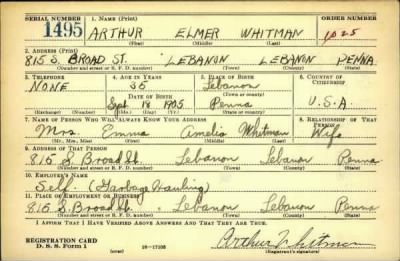 SERIAL NUMBER 1. NAME (Print) ORDER NUMBER
1495 ARTHUR ELMER WHITMAN 1025
(First) (Middle) (Last)
2. ADDRESS (Print)
815 S. BROAD ST. LEBANON LEBANON PENNA
(Number and street or R. F. D. number) (Town) (County) (State)
3. TELEPHONE 4. AGE IN YEARS 5. PLACE OF BIRTH 6. COUNTRY OF CITIZENSHIP
NONE 35 Lebanon
DATE OF BIRTH (Town or county)
Sept 18 1905 Penna U.S.A.
(Exchange) (Number) (Mo.) (Day) (Yr.) (State or country)
7. NAME OF PERSON WHO WILL ALWAYS KNOW YOUR ADDRESS 8. RELATIONSHIP OF THAT PERSON
Mrs. Emma Amelia Whitman Wife
(Mr., Mrs., Miss) (First) (Middle) (Last)
9. ADDRESS OF THAT PERSON
815 S. Broad St. Lebanon Lebanon Penna
(Number and street or R. F. D. number) (Town) (County) (State)
10. EMPLOYER'S NAME
Self. (Garbage Hauling)
11. PLACE OF EMPLOYMENT OR BUSINESS
815 S. Broad St. Lebanon Lebanon Penna
(Number and street or R. F. D. number) (Town) (County) (State)
I AFFIRM THAT I HAVE VERIFIED ABOVE ANSWERS AND THAT THEY ARE TRUE.
REGISTRATION CARD
D. S. S. Form 1 (over) 16—17105 Arthur Whitman
(Registrant's signature)